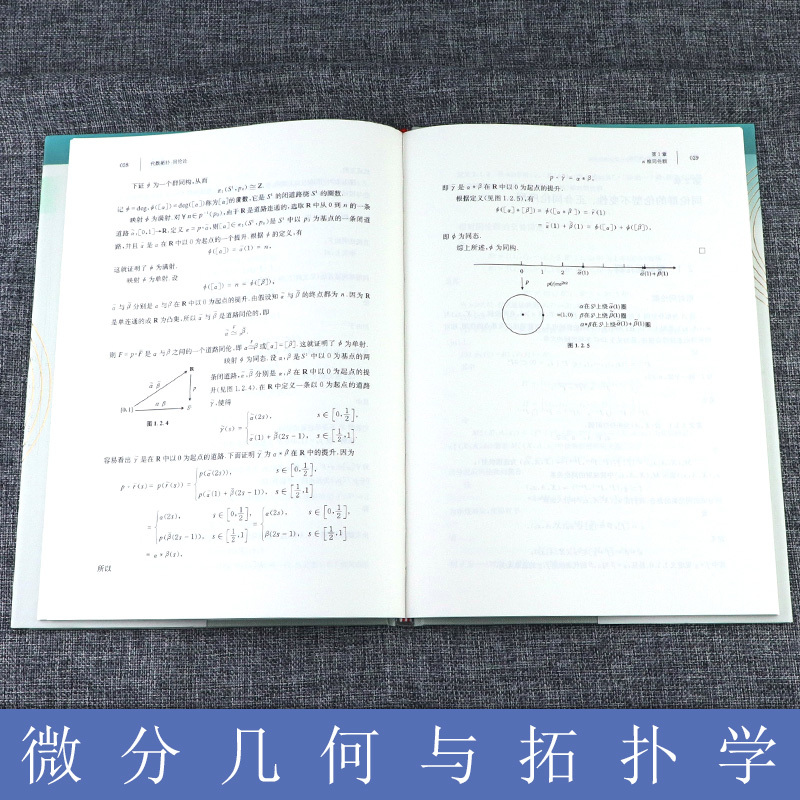 028 代数拓扑:同伦论
下证 ϕ 为一个群同构,从而
π₁(S¹,p₀) ≅ Z.
记 ϕ=deg,ϕ([α])=deg([α])称为[α]的度数,它是 S¹ 的闭道路绕 S¹ 的圈数.
映射 ϕ 为满射. 对∀n∈p⁻¹(p₀),由于 R 是道路连通的,选取 R 中从 0 到 n 的一条
道路 α̃:[0,1]→R. 定义 α=p∘α̃,则[α]∈π₁(S¹,p₀)是 S¹ 中以 p₀ 为基点的一条闭道
路,并且 α̃ 是 α 在 R 中以 0 为起点的一个提升. 根据 ϕ 的定义,有
ϕ([α])=α̃(1)=n,
这就证明了 ϕ 为满射.
映射 ϕ 为单射. 设
ϕ([α])=n=ϕ([β]),
α̃ 与 β̃ 分别是 α 与 β 在 R 中以 0 为起点的提升. 由假设知 α̃ 与 β̃ 的终点都为 n. 因为 R
是单连通的或 R 为凸集,所以 α̃ 与 β̃ 是道路同伦的,即
α̃ ≃ β̃.
则 F=p∘F̃ 是 α 与 β 之间的一个道路同伦,即 α≃β 或[α]=[β]. 这就证明了 ϕ 为单射.
映射 ϕ 为同态. 设 α,β 是 S¹ 中以 0 为基点的两
条闭道路,α̃,β̃ 分别是 α,β 在 R 中以 0 为起点的提
升(见图 1.2.4). 在 R 中定义一条以 0 为起点的道路
γ̃,使得
R
α̃ β̃
p
[0,1]
α β
S¹
图 1.2.4
γ̃(s)={α̃(2s), s∈[0,1/2],
α̃(1)+β̃(2s-1), s∈[1/2,1].
容易看出 γ̃ 是在 R 中以 0 为起点的道路. 下面证明 γ̃ 为 α*β 在 R 中的提升. 因为
p∘γ̃(s)=p(γ̃(s))={p(α̃(2s)), s∈[0,1/2],
p(α̃(1)+β̃(2s-1)), s∈[1/2,1]
={α(2s), s∈[0,1/2], ={α(2s), s∈[0,1/2],
p(β̃(2s-1)), s∈[1/2,1] β(2s-1)), s∈[1/2,1]
=α*β(s),
所以
第1章 029
n 维同伦群
p∘γ̃=α*β,
即 γ̃ 是 α*β 在 R 中以 0 为起点的提升.
根据定义(见图 1.2.5),有
ϕ([α]*[β])=ϕ([α*β])=γ̃(1)
=α̃(1)+β̃(1)=ϕ([α])+ϕ([β]),
即 ϕ 为同态.
综上所述,ϕ 为同构. □
0 1 2 α̃(1) α̃(1)+β̃(1)
p
(1,0)
α在S¹上绕α̃(1)圈
β在S¹上绕β̃(1)圈
α*β在S¹上绕α̃(1)+β̃(1)圈
图 1.2.5
微分几何与拓扑学